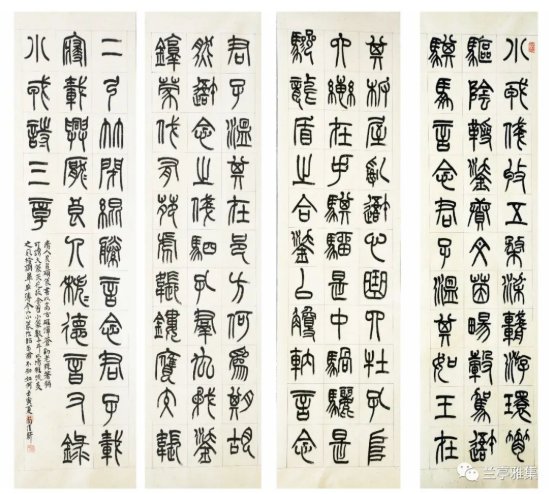 小戎俴收五楘梁輈游環脅
驅陰靷鋈續文茵暢轂駕我
騏馵言念君子溫其如玉在
其板屋亂我心曲四牡孔阜
六轡在手騏騮是中騧驪是
驂龍盾之合鋈以觼軜言念
君子溫其在邑方何為期胡
然我念之俴駟孔群厹矛鋈
錞蒙伐有苑虎韔鏤膺交韔
二弓竹閉緄縢言念君子載
寢載興厭良人秩德音又錄
小戎詩三章
兰亭雅集